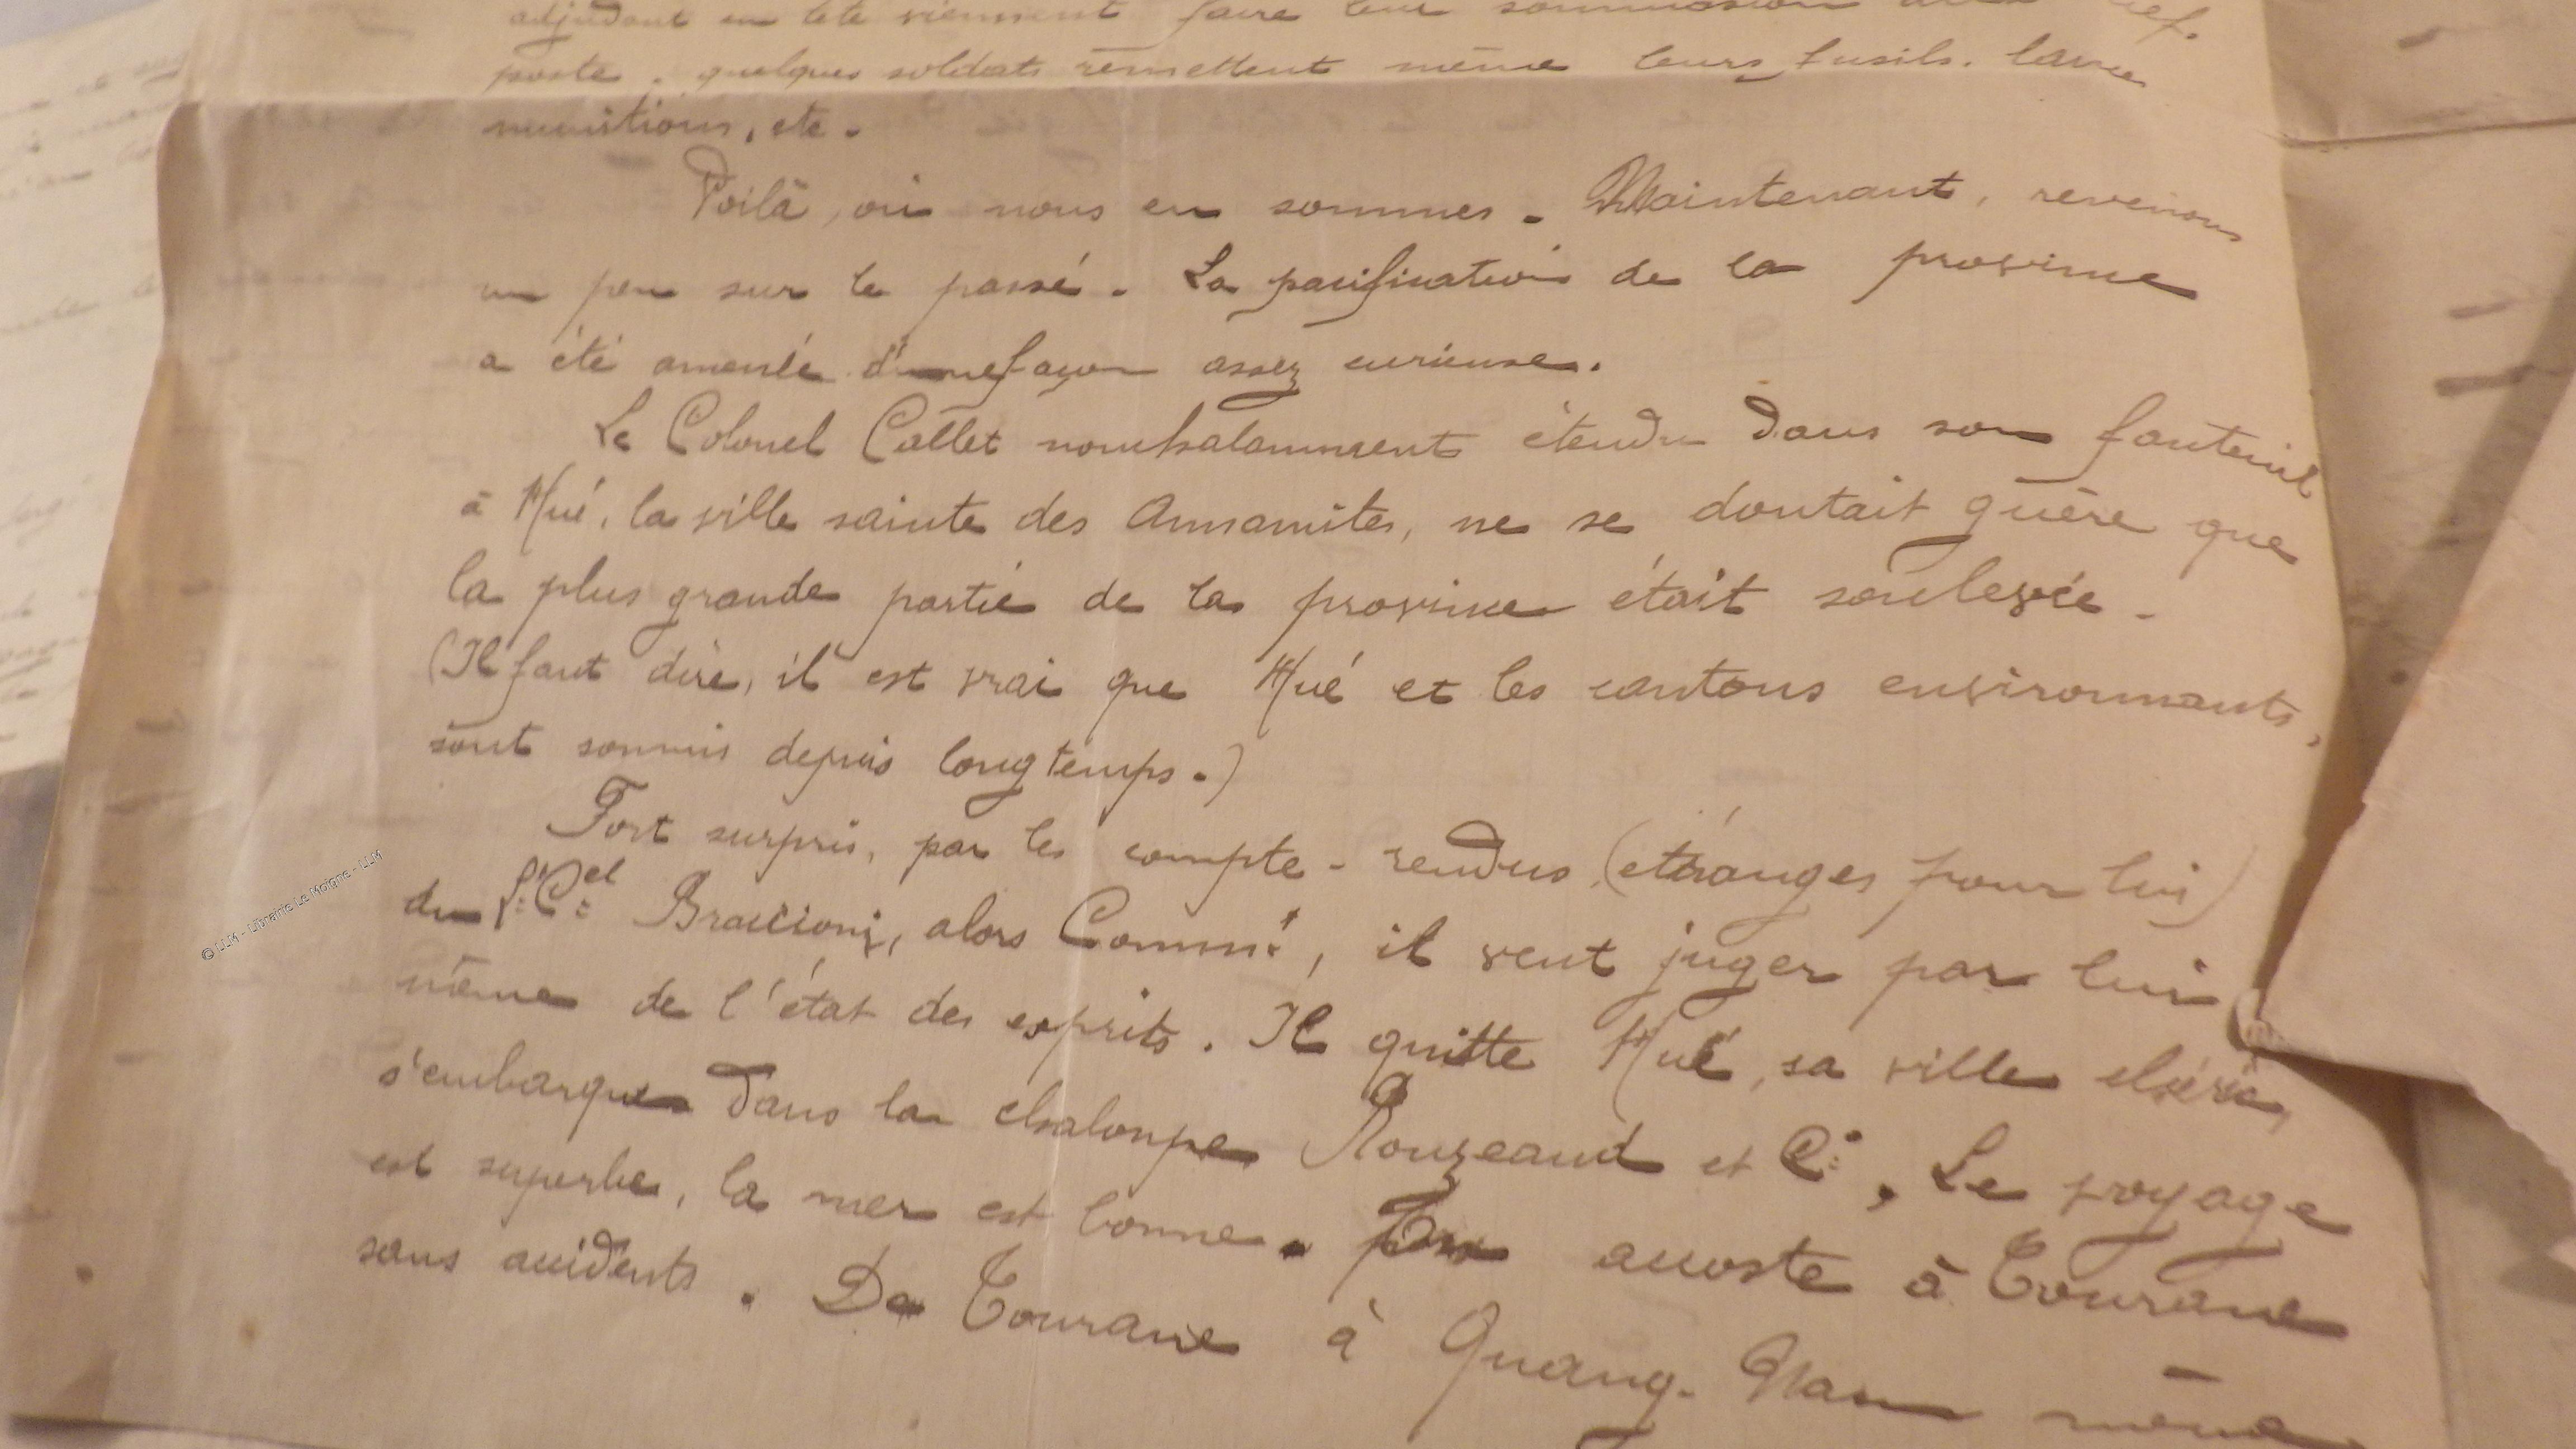 adjudant en tête viennent faire leur soumission au chef.
poste. quelques soldats remettent même leurs fusils. lances
munitions, etc.
Voilà, où nous en sommes. Maintenant, revenons
un peu sur le passé. La pacification de la province
a été amenée d'une façon assez curieuse.
Le Colonel Callet nonchalamment étendu dans son fauteuil
à Hué, la ville sainte des Annamites, ne se doutait guère que
la plus grande partie de la province était soulevée.
(Il faut dire, il est vrai que Hué et les cantons environnants,
sont soumis depuis longtemps.)
Fort surpris, par les compte-rendus (étranges pour lui)
du Lt Cel Braccioni, alors Commt, il veut juger par lui
même de l'état des esprits. Il quitte Hué, sa ville chérie,
s'embarque dans la chaloupe Rouzeaud et Cie. Le voyage
est superbe, la mer est bonne. On accoste à Tourane
sans accidents. De Tourane à Quang-Nam même
© LLM - Librairie Le Moigne - LLM